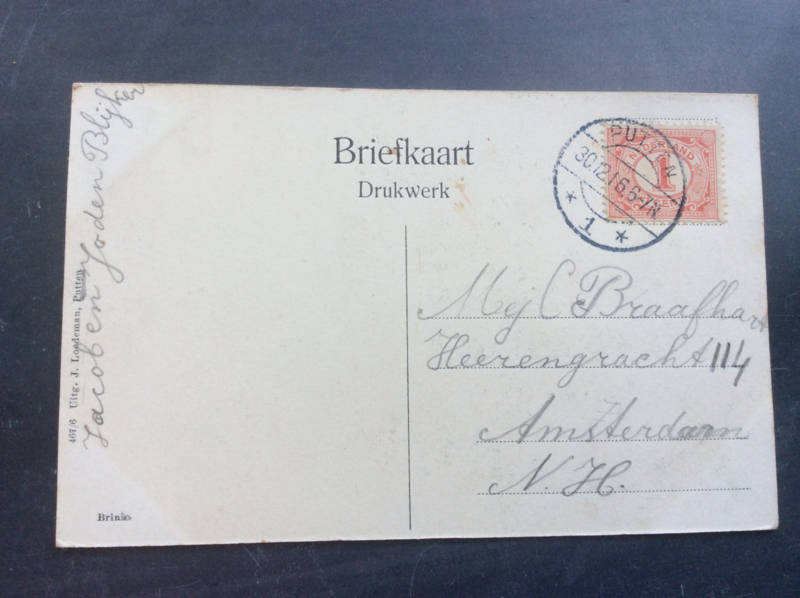 Briefkaart
Drukwerk
PUTTEN
30.12.16.6-7N
1
NEDERLAND
1
CENT
Mej C Braafhart
Heerengracht 114
Amsterdam
N.H.
Jacob en Joden Blijker
467/6 Uitg. J. Loedeman, Putten
Brinio.